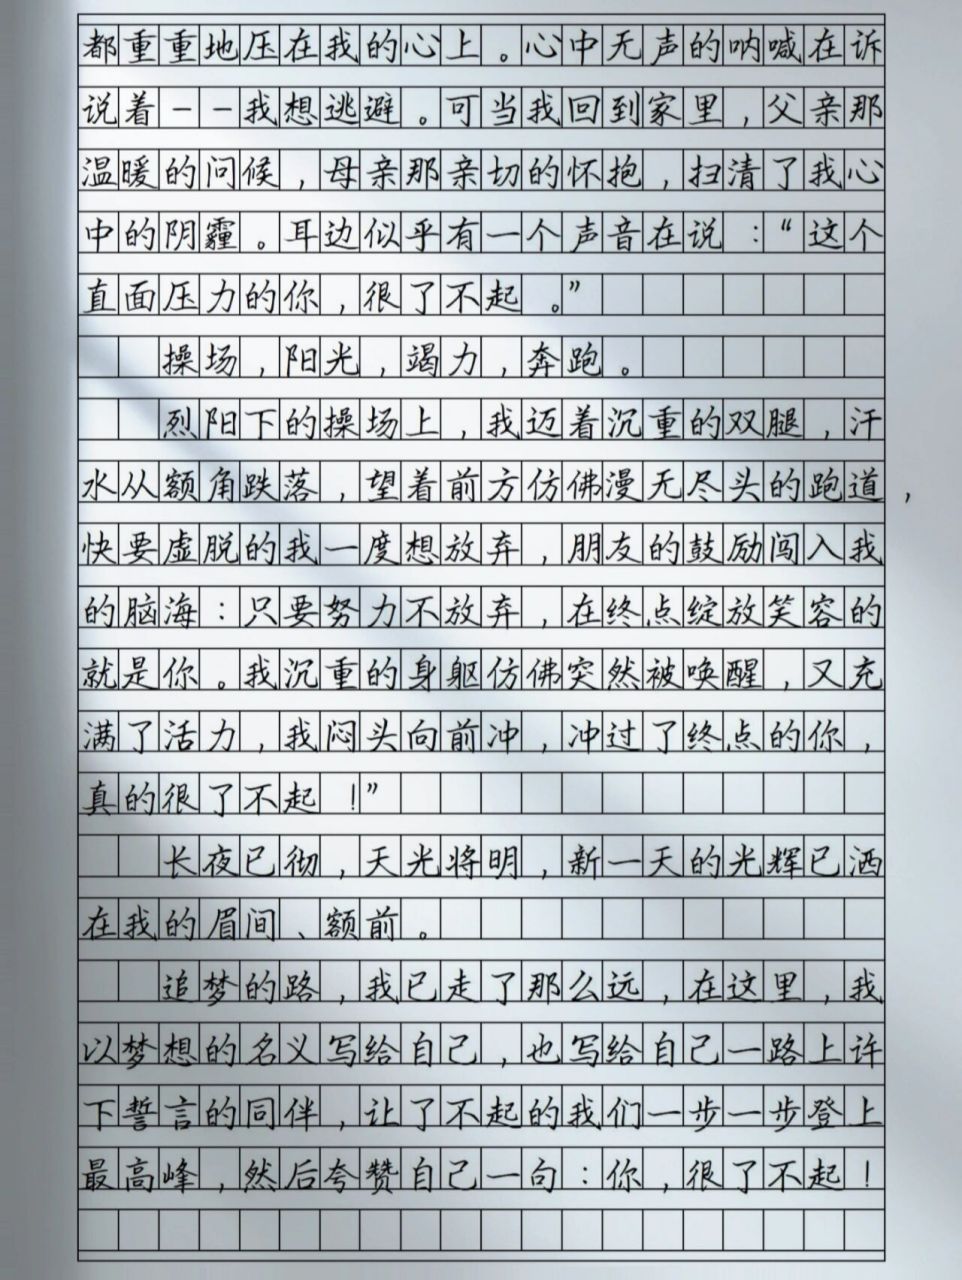 都重重地压在我的心上。心中无声的呐喊在诉
说着--我想逃避。可当我回到家里，父亲那
温暖的问候，母亲那亲切的怀抱，扫清了我心
中的阴霾。耳边似乎有一个声音在说：“这个
直面压力的你，很了不起。”
操场，阳光，竭力，奔跑。
烈阳下的操场上，我迈着沉重的双腿，汗
水从额角跌落，望着前方仿佛漫无尽头的跑道，
快要虚脱的我一度想放弃，朋友的鼓励闯入我
的脑海：只要努力不放弃，在终点绽放笑容的
就是你。我沉重的身躯仿佛突然被唤醒，又充
满了活力，我闷头向前冲，冲过了终点的你，
真的很了不起！”
长夜已彻，天光将明，新一天的光辉已洒
在我的眉间、额前。
追梦的路，我已走了那么远，在这里，我
以梦想的名义写给自己，也写给自己一路上许
下誓言的同伴，让了不起的我们一步一步登上
最高峰，然后夸赞自己一句：你，很了不起！